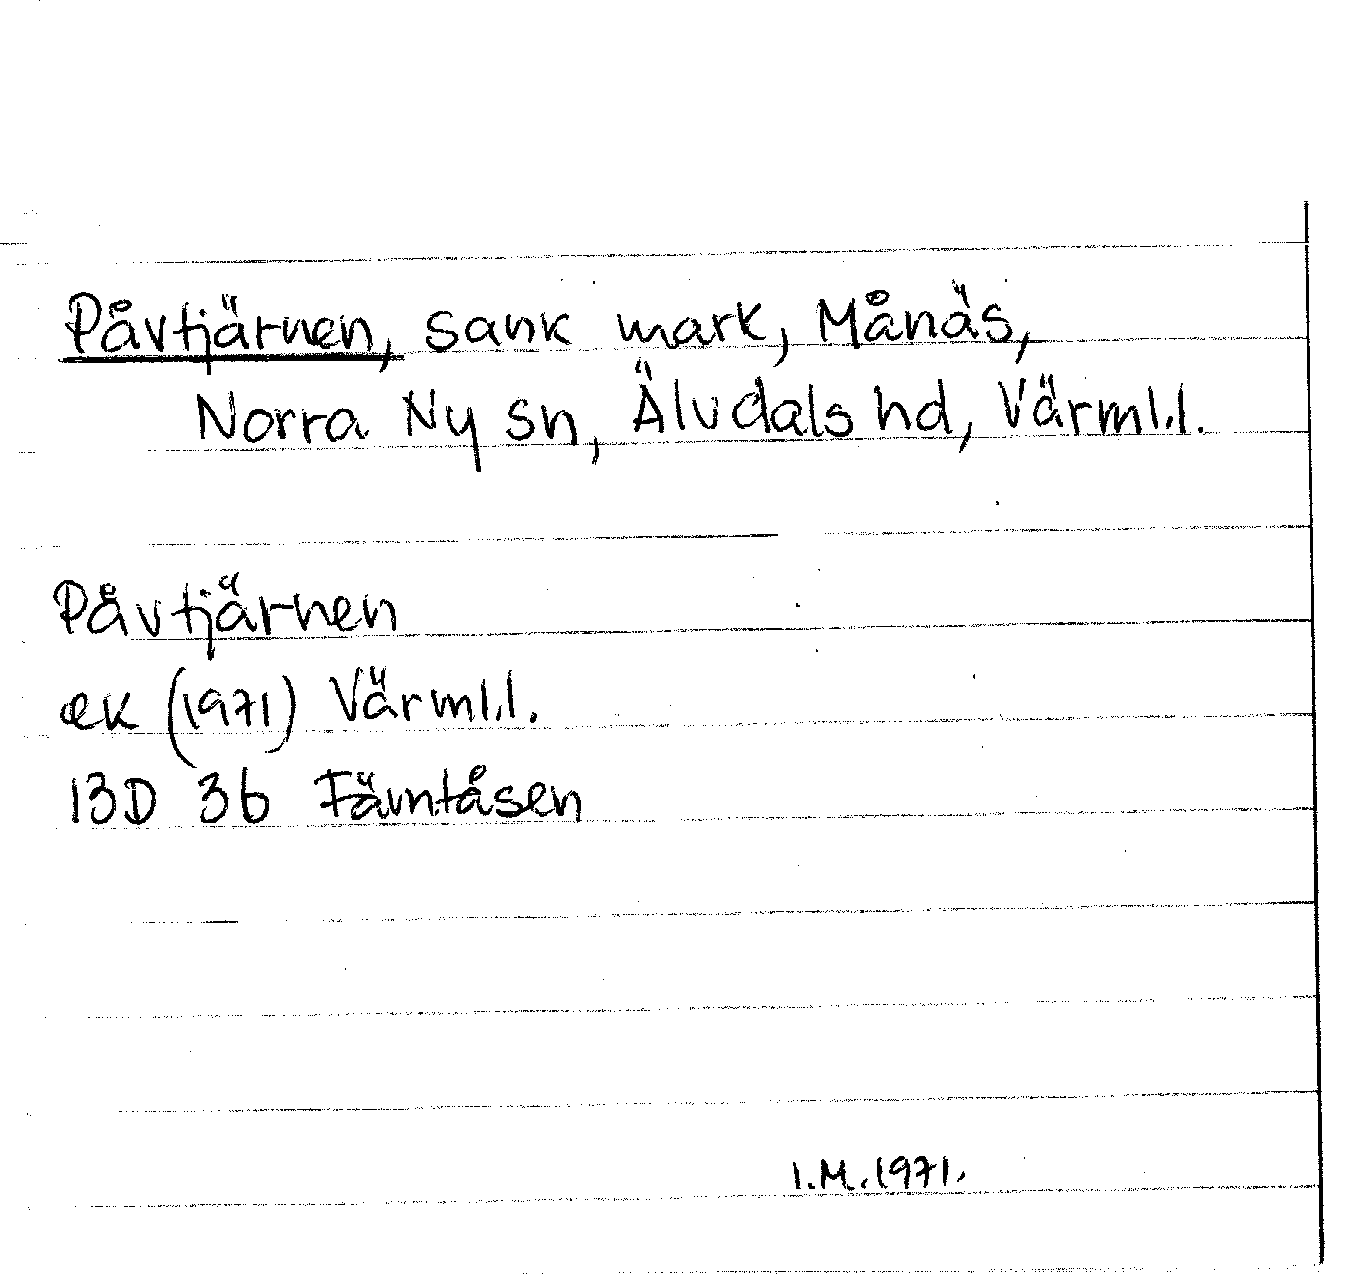 Påvtjärnen, sank mark, Månäs,
Norra Ny sn, Älvdals hd, Värml.l.
Påvtjärnen
ek (1971) Värml.l.
13D 3b Fämtåsen
I.M. 1971.